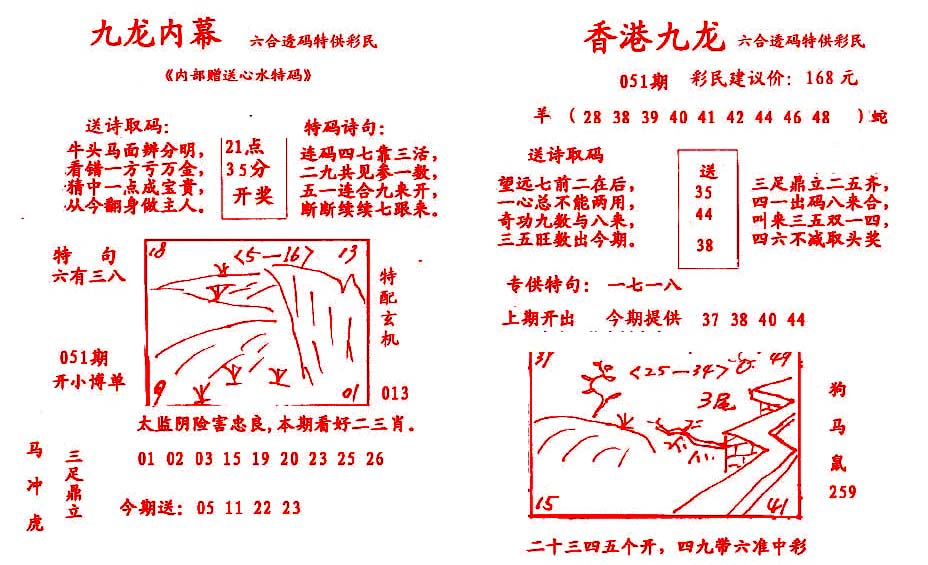 九龙内幕 六合透码特供彩民
《内部赠送心水特码》
送诗取码：
牛头马面辨分明，
看错一方亏万金，
猜中一点成宝贵，
从今翻身做主人。
21点
35分
开奖
特码诗句：
连码四七靠三活，
二九共见参一数，
五一连合九来开，
断断续续七跟来。
特句
六有三八
051期
开小博单
18
<5—16>
13
9
01
特配玄机
013
太监阴险害忠良，本期看好二三肖。
马冲虎
三足鼎立
01 02 03 15 19 20 23 25 26
今期送：05 11 22 23
香港九龙 六合透码特供彩民
051期 彩民建议价：168元
羊（28 38 39 40 41 42 44 46 48 ）蛇
送诗取码
望远七前二在后，
一心总不能两用，
奇功九数与八来，
三五旺数出今期。
送
35
44
38
三足鼎立二五齐，
四一出码八来合，
叫来三五双一四，
四六不减取头奖
专供特句：一七一八
上期开出 今期提供 37 38 40 44
37
<25—34>
49
3尾
15
41
狗
马
鼠
259
二十三四五个开，四九带六准中彩